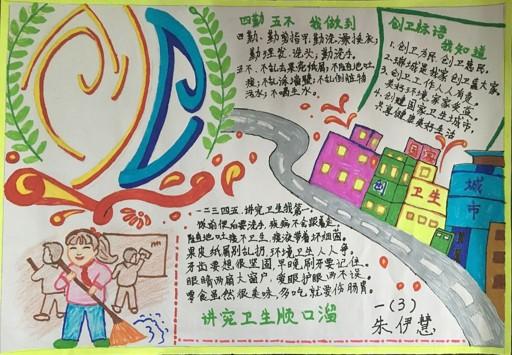 四勤 五不 我做到
四勤、勤剪指甲、勤洗澡换衣、
勤理发、洗头、勤洗手。
五不、不乱丢果壳纸屑、不随地吐
痰、不乱涂墙壁、不乱倒脏物
污水、不喝生水。
创卫标语
我知道
1、创卫为民,创卫惠民。
3、创卫工作人人有责。
美好环境,家家受益。
4、创建国家卫生城市,
共享健康美好生活
卫生
城市
一二三四五,讲究卫生我第一。
饭前便后要洗手,疾病不会跟着走。
随地吐痰不卫生,痰液带着坏细菌。
果皮纸屑别乱扔,环境卫生人人争。
牙齿要想很坚固,早晚刷牙要记住。
眼睛两扇大窗户,爱眼护眼两不误。
零食虽然很美味,多吃就要伤肠胃。
讲究卫生顺口溜
一(3)
朱伊慧